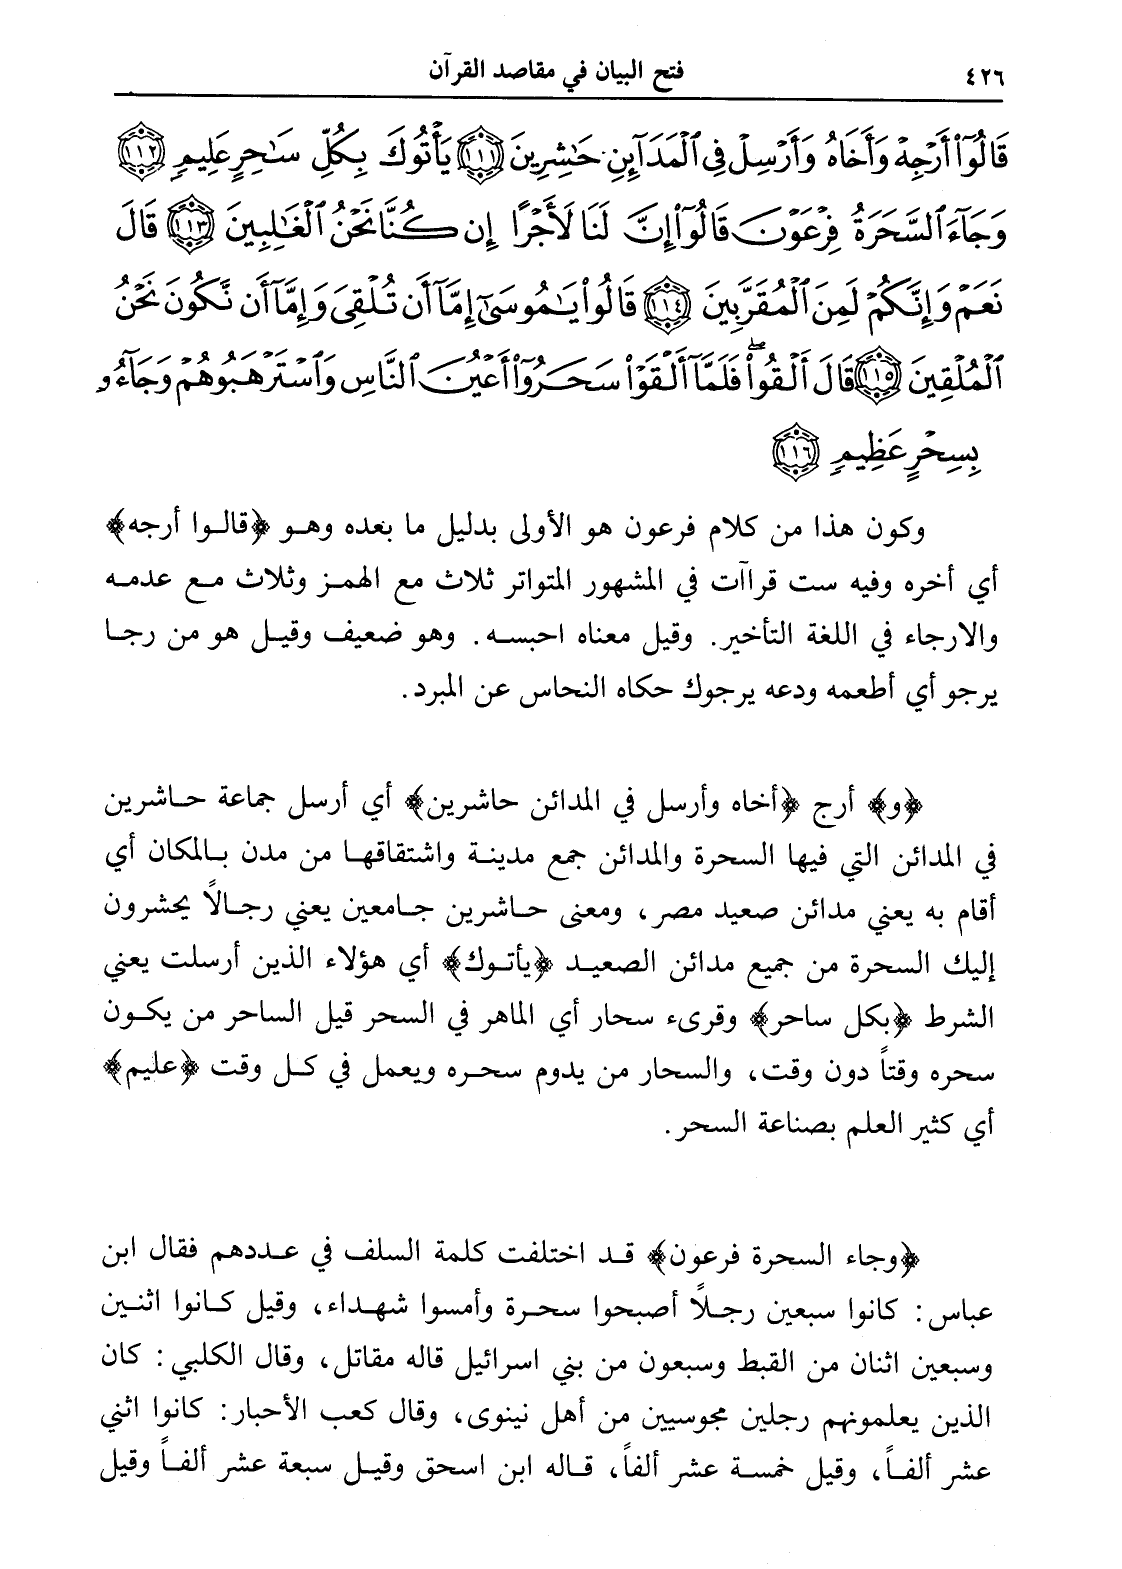 ٤٢٦ فتح البيان في مقاصد القرآن
قَالُوٓا۟ أَرْجِهْ وَأَخَاهُ وَأَرْسِلْ فِى ٱلْمَدَآئِنِ حَٰشِرِينَ ١١١ يَأْتُوكَ بِكُلِّ سَٰحِرٍ عَلِيمٍ ١١٢
وَجَآءَ ٱلسَّحَرَةُ فِرْعَوْنَ قَالُوٓا۟ إِنَّ لَنَا لَأَجْرًا إِن كُنَّا نَحْنُ ٱلْغَٰلِبِينَ ١١٣ قَالَ
نَعَمْ وَإِنَّكُمْ لَمِنَ ٱلْمُقَرَّبِينَ ١١٤ قَالُوا۟ يَٰمُوسَىٰٓ إِمَّآ أَن تُلْقِىَ وَإِمَّآ أَن نَّكُونَ نَحْنُ
ٱلْمُلْقِينَ ١١٥ قَالَ أَلْقُوا۟ۖ فَلَمَّآ أَلْقَوْا۟ سَحَرُوٓا۟ أَعْيُنَ ٱلنَّاسِ وَٱسْتَرْهَبُوهُمْ وَجَآءُو
بِسِحْرٍ عَظِيمٍ ١١٦
وكون هذا من كلام فرعون هو الأولى بدليل ما بعده وهو ﴿قالوا أرجه﴾
أي أخره وفيه ست قراآت في المشهور المتواتر ثلاث مع الهمز وثلاث مع عدمه
والارجاء في اللغة التأخير. وقيل معناه احبسه. وهو ضعيف وقيل هو من رجا
يرجو أي أطعمه ودعه يرجوك حكاه النحاس عن المبرد.
﴿و﴾ أرج ﴿أخاه وأرسل في المدائن حاشرين﴾ أي أرسل جماعة حاشرين
في المدائن التي فيها السحرة والمدائن جمع مدينة واشتقاقها من مدن بالمكان أي
أقام به يعني مدائن صعيد مصر، ومعنى حاشرين جامعين يعني رجالاً يحشرون
إليك السحرة من جميع مدائن الصعيد ﴿يأتوك﴾ أي هؤلاء الذين أرسلت يعني
الشرط ﴿بكل ساحر﴾ وقرىء سحار أي الماهر في السحر قيل الساحر من يكون
سحره وقتاً دون وقت، والسحار من يدوم سحره ويعمل في كل وقت ﴿عليم﴾
أي كثير العلم بصناعة السحر.
﴿وجاء السحرة فرعون﴾ قد اختلفت كلمة السلف في عددهم فقال ابن
عباس: كانوا سبعين رجلاً أصبحوا سحرة وأمسوا شهداء، وقيل كانوا اثنين
وسبعين اثنان من القبط وسبعون من بني اسرائيل قاله مقاتل، وقال الكلبي: كان
الذين يعلمونهم رجلين مجوسيين من أهل نينوى، وقال كعب الأحبار: كانوا اثني
عشر ألفاً، وقيل خمسة عشر ألفاً، قاله ابن اسحق وقيل سبعة عشر ألفاً وقيل